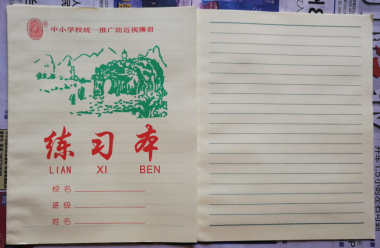 中小学校统一推广防近视簿册
练习本
LIAN XI BEN
校名
班级
姓名